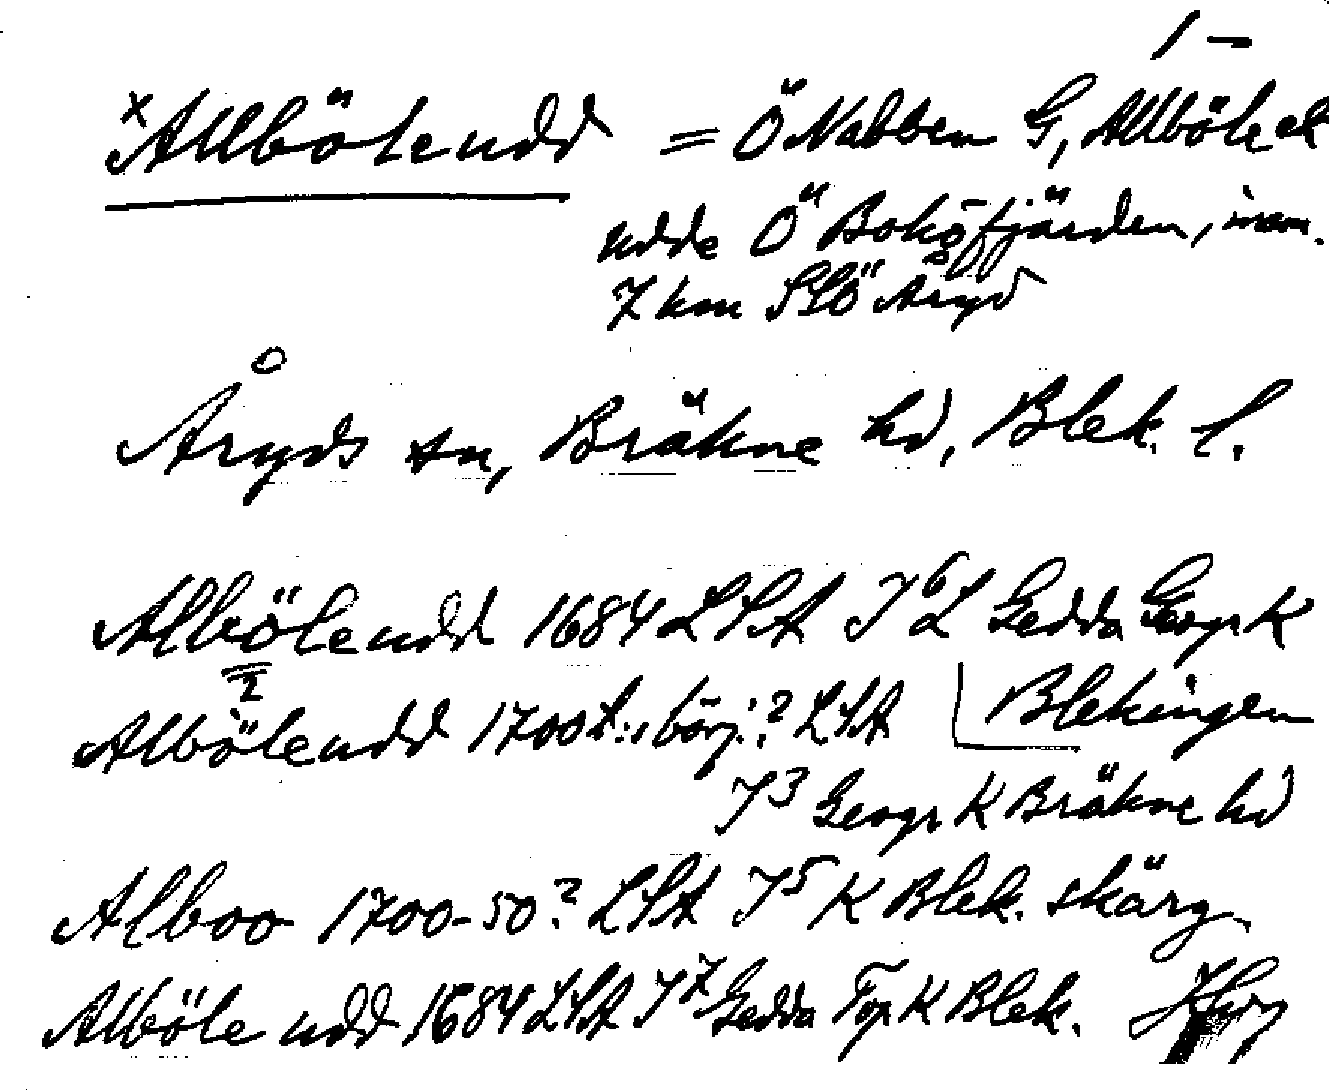 1 –
×Allbölendd = Ö Nabben G, Allböle ek
udde Ö Boköfjärden, inom.
7 km SSÖ Åryd
Åryds sn, Bräkne hd, Blek. l.
Albölendd 1684 LSA I6L Gedda Geogr K
Blekingen
Albölendd 1700 t., börj.? LSA
I3 Geogr K Bräkne hd
Alboo 1700-50? LSA I5 K Blek. skärg
Alböle udd 1684 LSA I7 Gedda Top K Blek.